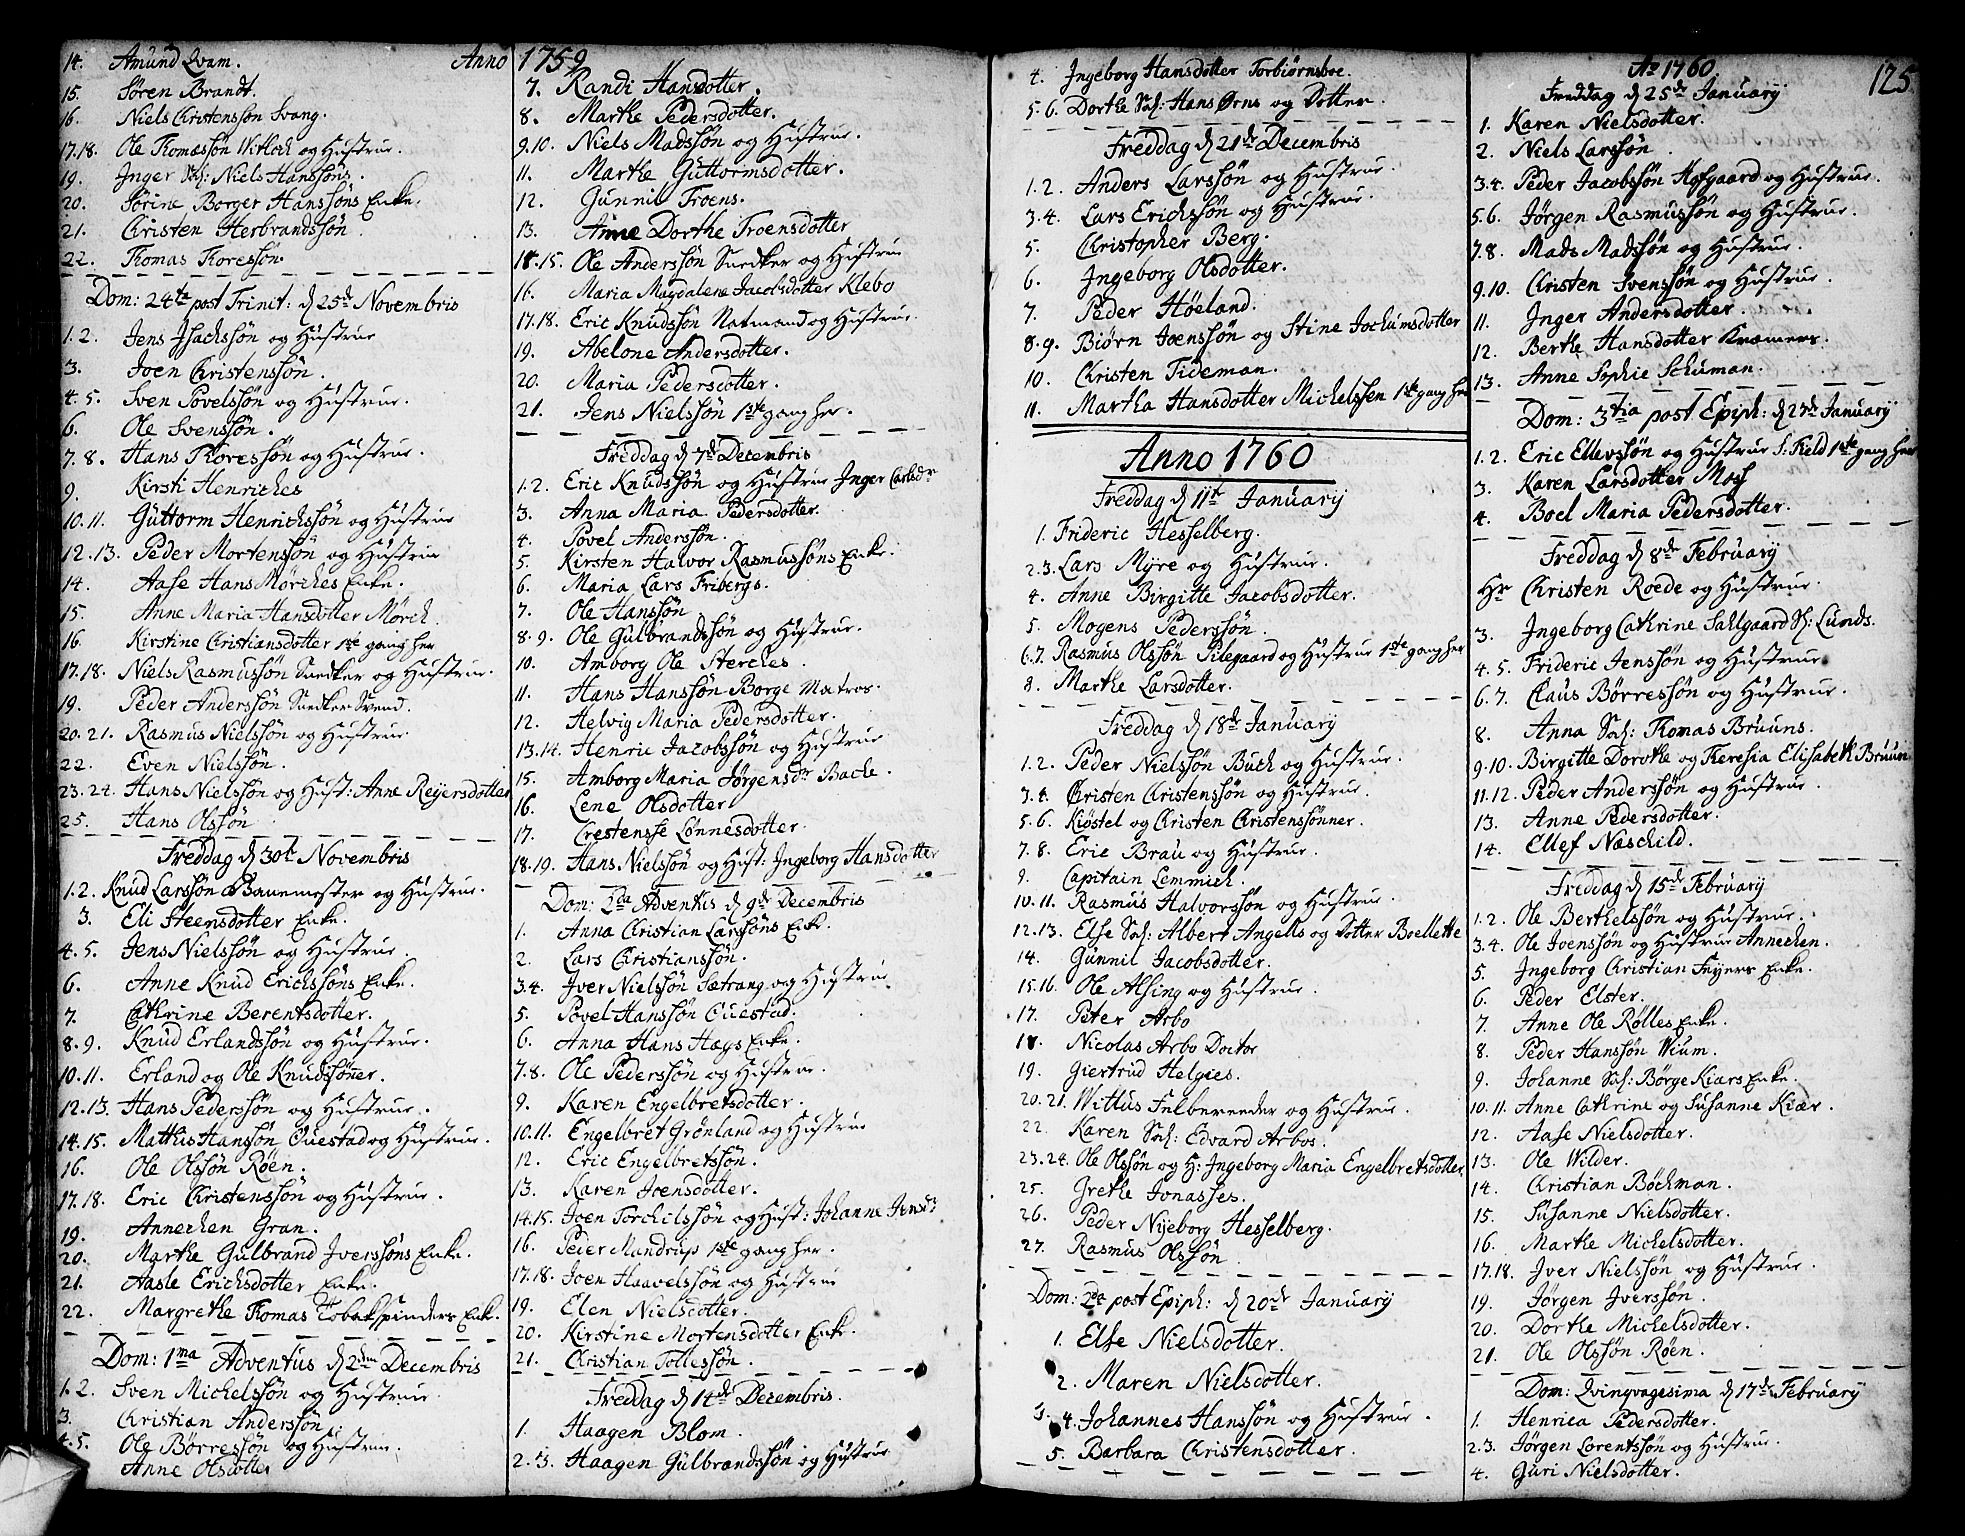 Anno 1759
14. Amund Qvam.
15. Søren Brandt.
16. Niels Christensøn Svang.
17.18. Ole Thomæssøn Witloch og Hustrue.
19. Inger Sal: Niels Hanssøns.
20. Sørine Borger Hanssøns Enke.
21. Christen Herbrandssøn.
22. Thomas Thoressøn.
Dom: 24te post Trinit: d 25de Novembris
1.2. Jens Isachssøn og Hustrue
3. Joen Christenssøn.
4.5. Sven Povelssøn og Hustrue.
6. Ole Svenssøn.
7.8. Hans Thoressøn og Hustrue.
9. Kirsti Henriches
10.11. Guttorm Henrichssøn og Hustrue
12.13. Peder Mortenssøn og Hustrue
14. Aase Hans Mørches Enke.
15. Anne Maria Hansdotter Mørch.
16. Kirstine Christiansdotter 1ste gang her
17.18. Niels Rasmussøn Snedker og Hustrue.
19. Peder Anderssøn Snedker Svend.
20.21. Rasmus Nielssøn og Hustrue
22. Even Nielssøn.
23.24. Hans Nielssøn og Hust: Anne Reyersdotter
25. Hans Olssøn
Freddag d 30te Novembris
1.2. Knud Larssøn Banemester og Hustrue.
3. Eli Steensdotter Enke.
4.5. Jens Nielssøn og Hustrue.
6. Anne Knud Erichssøns Enke.
7. Cathrine Berentsdotter.
8.9. Knud Erlandssøn og Hustrue.
10.11. Erland og Ole Knudssønner.
12.13. Hans Pederssøn og Hustrue.
14.15. Mathis Hanssøn Questad og Hustrue.
16. Ole Olssøn Røen.
17.18. Eric Christenssøn og Hustrue.
19. Annechen Gran.
20. Marthe Gulbrand Iverssøns Enke.
21. Aasle Erichsdotter Enke.
22. Margrethe Thomas Tobakspinders Enke.
Dom: 1ma Adventus d 2den Decembris
1.2. Sven Michelssøn og Hustrue.
3. Christian Anderssøn
4.5. Ole Børressøn og Hustrue.
Anne Olsdotter
7. Randi Hansdotter.
8. Marthe Pedersdotter.
9.10. Niels Madssøn og Hustrue.
11. Marthe Guttormsdotter.
12. Gunnil Troens.
13. Anne Dorthe Troensdotter
14.15. Ole Anderssøn Snedker og Hustrue
16. Maria Magdalene Jacobsdotter Klebo
17.18. Eric Knudssøn Natmand og Hustrue.
19. Abelone Andersdotter.
20. Maria Pedersdotter.
21. Jens Nielssøn 1ste gang her.
Freddag d 7de Decembris
1.2. Eric Knudssøn og Hustrue Inger Carlsdr
3. Anna Maria Pedersdotter.
4. Povel Anderssøn.
5. Kirsten Halvor Rasmussøns Enke.
6. Maria Lars Fribergs.
7. Ole Hanssøn
8.9. Ole Gulbrandssøn og Hustrue.
10. Amborg Ole Sterches.
11. Hans Hanssøn Borge Matros.
12. Helvig Maria Pedersdotter.
13.14. Henric Jacobssøn og Hustrue
15. Amborg Maria Jørgensdr Bache.
16. Lene Olsdotter
17. Crestense Lønnesdotter.
18.19. Hans Nielssøn og Hust: Ingeborg Hansdotter
Dom: 2da Adventus d 9de Decembris
1. Anna Christian Larssøns Enk.
2. Lars Christianssøn.
3.4. Iver Nielssøn Sætrang og Hustrue
5. Povel Hanssøn Questad.
6. Anna Hans Hags Enke.
7.8. Ole Pederssøn og Hustrue.
9. Karen Engelbretsdotter.
10.11. Engelbret Grønland og Hustrue
12. Eric Engelbretssøn.
13. Karen Joensdotter.
14.15. Joen Torchilssøn og Hust: Johanne Jensdr
16. Peder Mandrup 1ste gang her.
17.18. Joen Haavelssøn og Hustrue
19. Elen Nielsdotter.
20. Kirstine Mortensdotter Enke.
21. Christian Tollessøn.
Freddag d 14de Decembris.
1. Haagen Blom.
2.3. Haagen Gulbrandssøn og Hustrue
4. Ingeborg Hansdotter Torbiørnsboe.
5.6. Dorthe Sal: Hans Ørns og Dotter.
Freddag d 21de Decembris
1.2. Anders Larssøn og Hustrue.
3.4. Lars Erichssøn og Hustrue.
5. Christopher Berg.
6. Ingeborg Olsdotter.
7. Peder Høeland.
8.9. Biørn Joenssøn og Stine Jochumsdotter
10. Christen Tideman.
11. Martha Hansdotter Michelssen 1ste gang her
Anno 1760
Freddag d 11te January
1. Frideric Hesselberg.
2.3. Lars Myre og Hustrue.
4. Anne Birgitte Jacobsdotter.
5. Mogens Pederssøn.
6.7. Rasmus Olssøn Pilegaard og Hustrue 1ste gang her
8. Marthe Larsdotter.
Freddag d 18de January
1.2. Peder Nielssøn Buch og Hustrue.
3.4. Christen Christenssøn og Hustrue.
5.6. Kiøstel og Christen Christenssønner.
7.8. Eric Brau og Hustrue.
9. Capitain Lemmich.
10.11. Rasmus Halvorssøn og Hustrue.
12.13. Else Sal: Albert Angells og Dotter Boellette
14. Gunnil Jacobsdotter.
15.16. Ole Alsing og Hustrue.
17. Peter Arbo
18. Nicolas Arbo Doctor
19. Giertrud Helgies.
20.21. Wittus Felbereeder og Hustrue.
22. Karen Sal: Edvard Arbos.
23.24. Ole Olssøn og H: Ingeborg Maria Engelbretsdotter
25. Grethe Jonasses.
26. Peder Nyeborg Hesselberg.
27. Rasmus Olssøn
Dom: 2da post Epiph: d 20de January
1. Else Nielsdotter.
2. Maren Nielsdotter.
3.4. Johannes Hanssøn og Hustrue.
5. Barbara Christensdotter.
125
Ao 1760
Freddag d 25de January
1. Karen Nielsdotter.
2. Niels Larssøn.
3.4. Peder Jacobssøn Hofgaard og Hustrue.
5.6. Jørgen Rasmussøn og Hustrue.
7.8. Mads Madssøn og Hustrue.
9.10. Christen Svenssøn og Hustrue.
11. Inger Andersdotter.
12. Berthe Hansdotter Kræmers.
13. Anne Sophie Schuman.
Dom: 3tia post Epiph: d 27de January
1.2. Eric Ellevssøn og Hustrue S: Field 1ste gang her
3. Karen Larsdotter Moss
4. Boel Maria Pedersdotter.
Freddag d 8de February
Hr Christen Roede og Hustrue.
3. Ingeborg Cathrine Sahlgaard Sl: Lunds.
4.5. Frideric Jenssøn og Hustrue.
6.7. Claus Børressøn og Hustrue.
8. Anna Sal: Thomas Bruuns.
9.10. Birgitte Dorothe og Theresia Elisabeth Bruun
11.12. Peder Anderssøn og Hustrue.
13. Anne Pedersdotter.
14. Ellef Næschild.
Freddag d 15de February
1.2. Ole Berthelssøn og Hustrue.
3.4. Ole Joenssøn og Hustrue Annechen.
5. Ingeborg Christian Feyers Enke.
6. Peder Elster.
7. Anne Ole Rølles Enke.
8. Peder Hanssøn Wium.
9. Johanne Sal: Børge Kiærs Enke.
10.11. Anne Cathrine og Susanne Kiær.
12. Aase Nielsdotter.
13. Ole Wilder.
14. Christian Bøchman.
15. Susanne Nielsdotter.
16. Marthe Michelsdotter.
17.18. Iver Nielssøn og Hustrue.
19. Jørgen Iverssøn.
20. Dorthe Michelsdotter.
21. Ole Olssøn Røen.
Dom: Qvinqvagesima d 17de February
1. Henrica Pedersdotter.
2.3. Jørgen Lorentssøn og Hustrue.
4. Guri Nielsdotter.